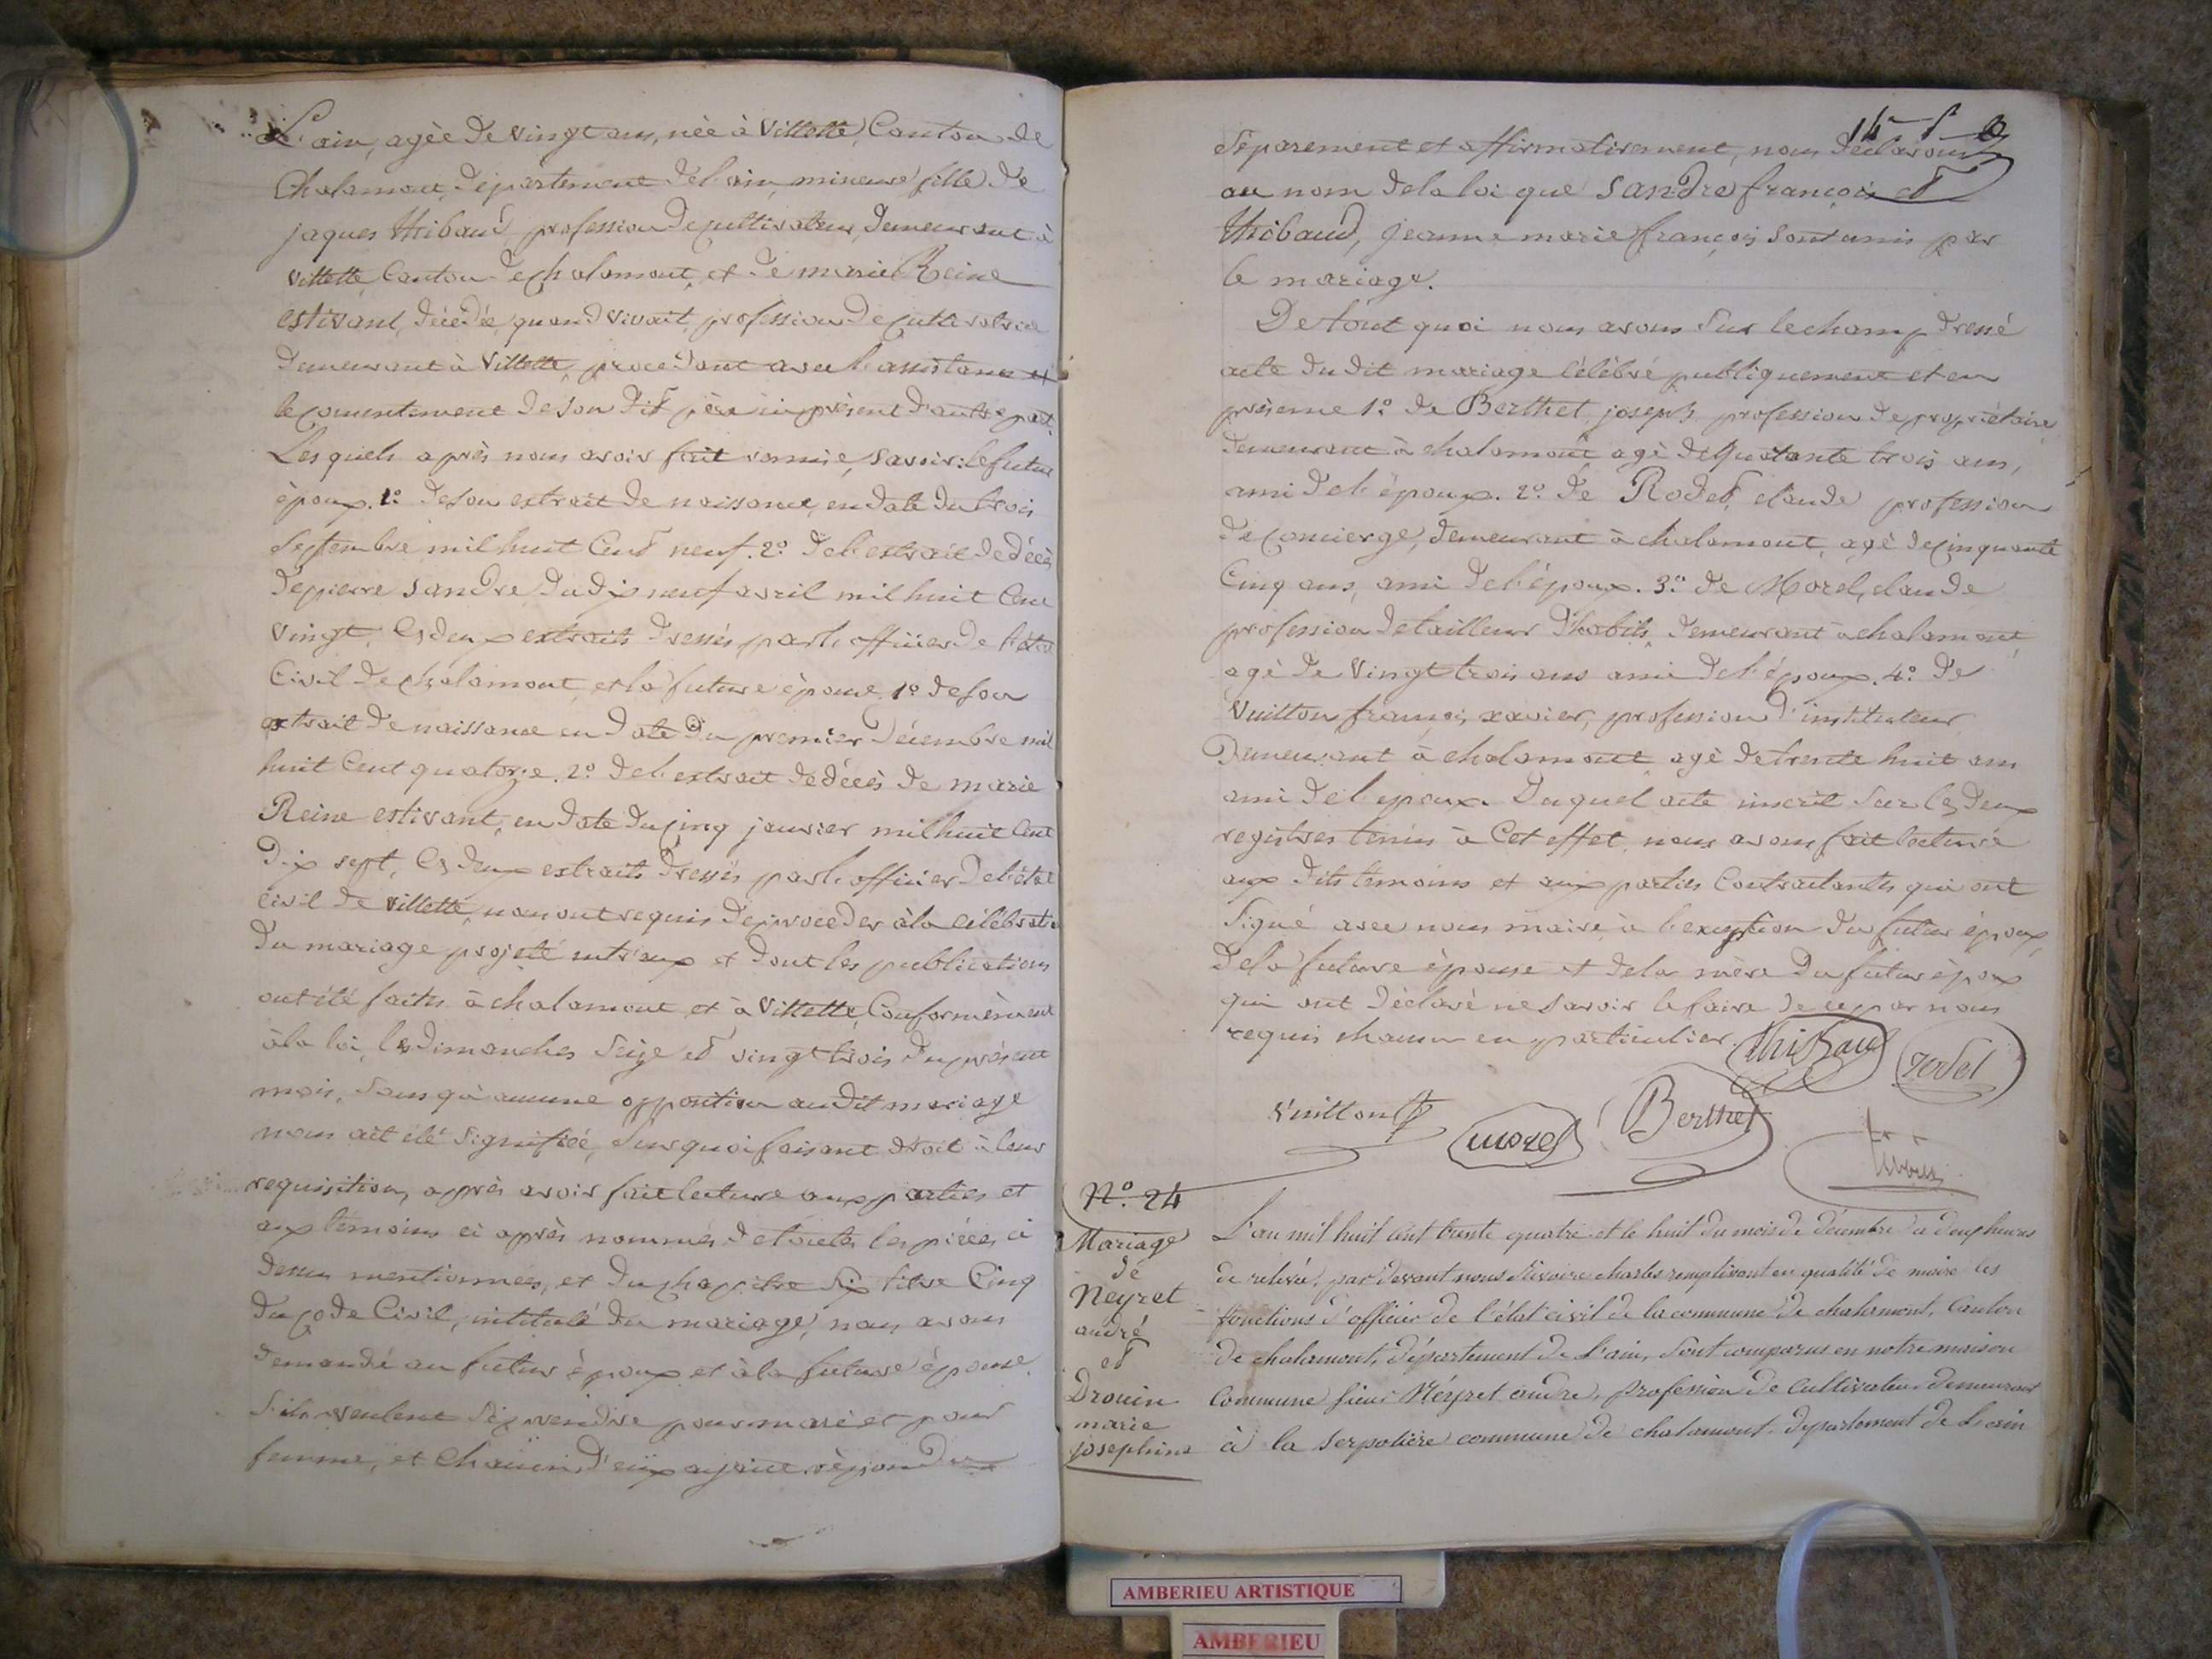 L'ain, agèe de vingt ans, nèe à Villette, Canton de
Chalamont, département de l'ain, mineure fille de
jaques thibaud, profession de cultivateur, demeurant à
villette Canton de chalamont, et de marie Reine
estivant, décédée, quand vivait profession de cultivatrice
demeurant à Villette, procedant avec l'assistance et
le consentement de son dit père ici présent d'autre part.
Lesquels après nous avoir fait remise, savoir: le futur
époux. 1º de son extrait de naissance, en date du trois
septembre mil huit Cent neuf. 2º de l'extrait de décès
de pierre Sandre du dix neuf avril mil huit Cent
vingt, les deux extraits dressés par l'officier de l'état
Civil de chalamont, et la future épouse, 1º de son
extrait de naissance en date du premier décembre mil
huit Cent quatorze. 2º de l'extrait de décès de marie
Reine estivant, en date du cinq janvier mil huit Cent
Dix sept, les deux extraits dressés par l'officier de l'état
civil de villette, nous ont requis de proceder à la célébration
du mariage projeté entr'eux et dont les publications
ont été faites à chalamont et à Villette, Conformément
à la loi, les dimanches seize et vingt trois du présent
mois, sans qu'aucune opposition audit mariage
nous ait été signifiée, sur quoi faisant droit à leur
requisition, après avoir fait lecture aux parties et
aux témoins ci après nommés de toutes les pièces ci
dessus mentionnées, et du chapitre six titre Cinq
du code Civil, intitulé du mariage, nous avons
demandé au futur époux et à la future épouse
s'ils veulent se prendre pour mari et pour
femme, et chacun d'eux ayant répondu
14
séparement et affirmativement, nous déclarons
au nom de la loi que Sandre françois et
thibaud, jeanne marie françois sont unis par
le mariage.
De tout quoi nous avons sur le champ dressé
acte du dit mariage célébré publiquement et en
présence 1º de Berthet joseph profession de propriétaire,
demeurant à chalamont agé de quarante trois ans,
ami de l'époux. 2º de Rodet, claude profession
de concierge, demeurant à chalamont, agé de cinquante
Cinq ans, ami de l'époux. 3º de Morel, claude
profession de tailleur d'habits, demeurant à chalamont
agé de vingt trois ans ami de l'époux. 4º de
Vuitton françois xavier, profession d'instituteur
Demeurant à chalamont agé de trente huit ans
ami de l'epoux. Duquel acte inscrit sur les deux
registres tenus à Cet effet, nous avons fait lecture
aux dits témoins et aux parties Contractantes qui ont
signé avec nous maire, à l'exception du futur époux,
de la future épouse et de la mère du futur époux
qui ont déclaré ne savoir le faire de ce par nous
requis chacun en particulier. thibaud rodet
Vuitton morel Berthet
Nº. 24
Mariage
de
Neyret
andré
et
Drouin
marie
josephine
L'an mil huit cent trente quatre et le huit du mois de décembre à deux heures
de relevée, par devant nous Rivoire charles remplissant en qualité de maire les
fonctions d'officier de l'état civil de la commune de chalamont, Canton
de chalamont, département de l'ain, sont comparus en notre maison
Commune sieur Néyret andré, profession de cultivateur demeurant
à la serpolière commune de chalamont département de l'ain
AMBERIEU ARTISTIQUE
AMBERIEU